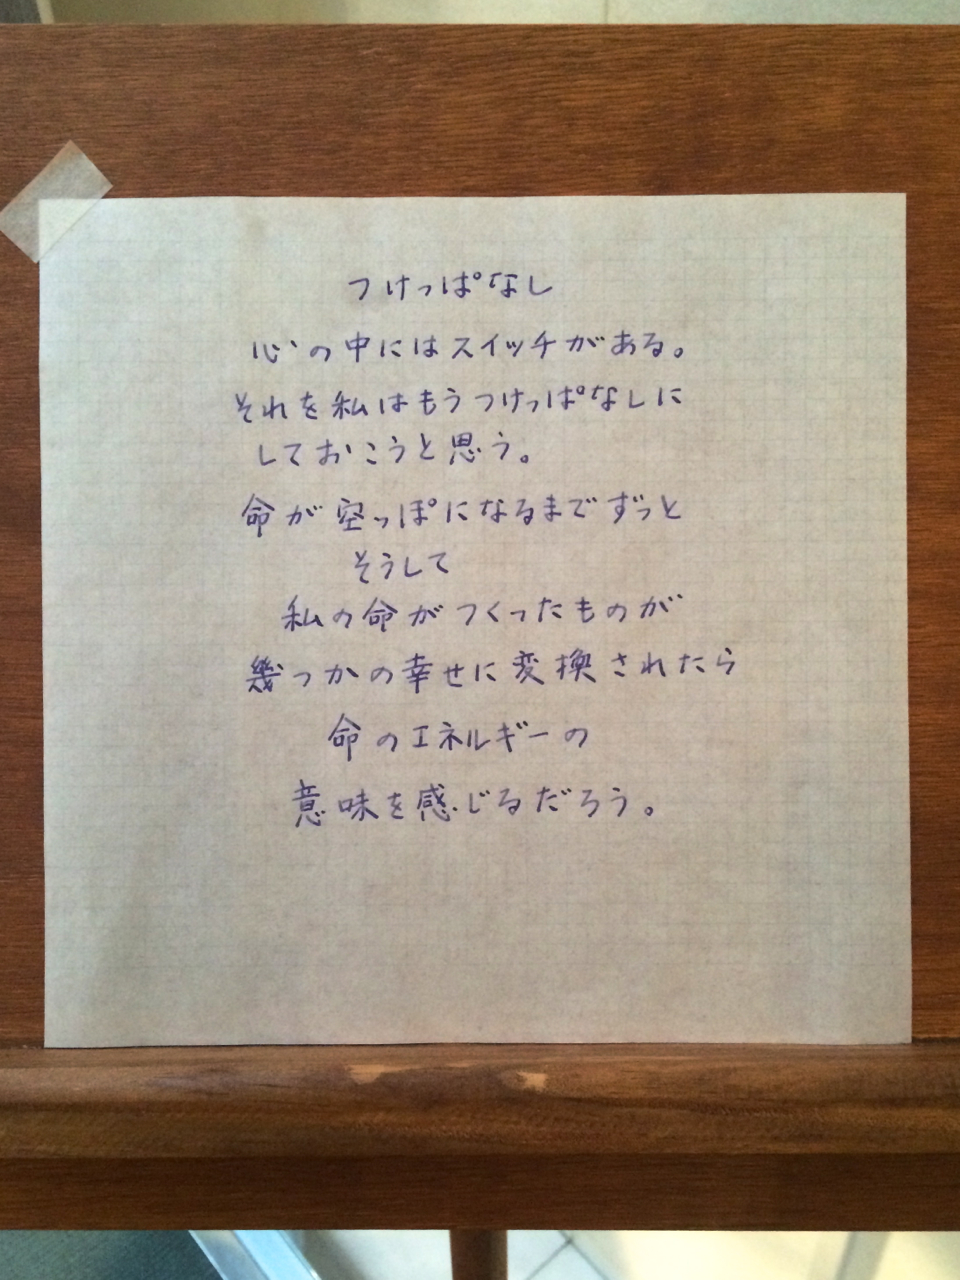 つけっぱなし
心の中にはスイッチがある。
それを私はもうつけっぱなしに
しておこうと思う。
命が空っぽになるまでずっと
そうして
私の命がつくったものが
幾つかの幸せに変換されたら
命のエネルギーの
意味を感じるだろう。